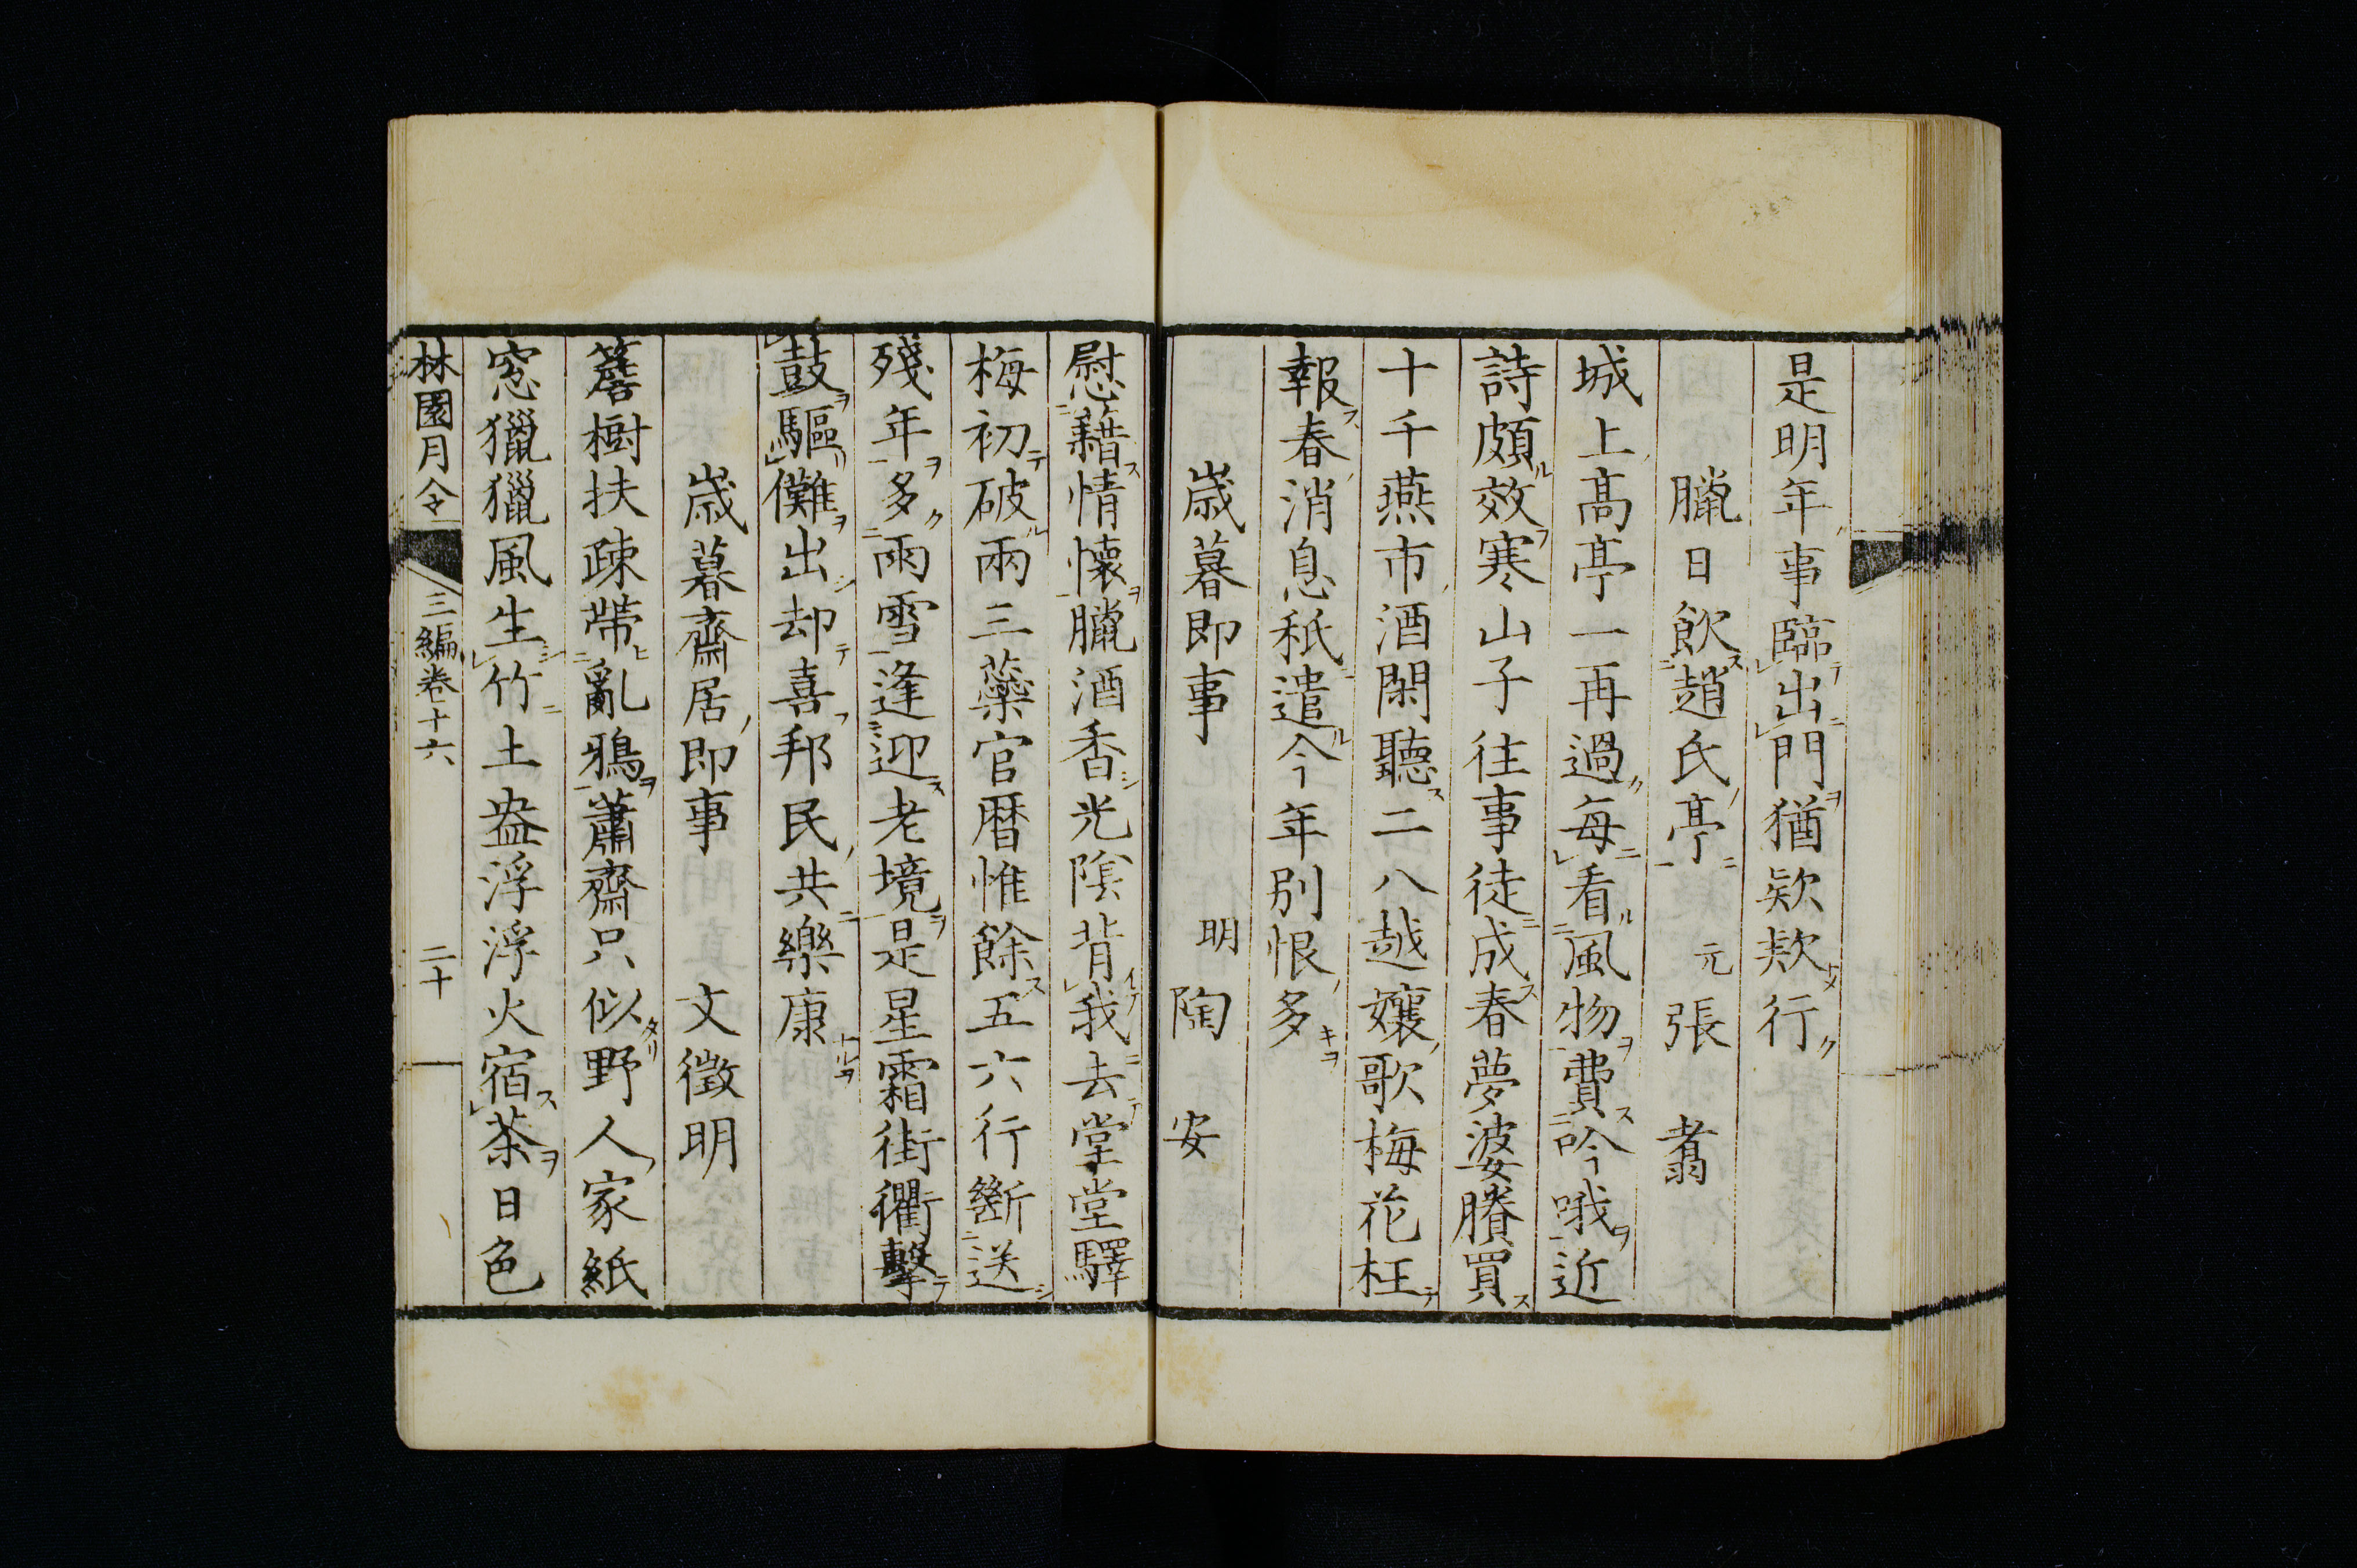 是明年事臨出門猶欵欵行
臘日飲趙氏亭 元 張翥
城上髙亭一再過毎看風物費吟哦近
詩頗效寒山子往事徒成春夢婆賸買
十千燕市酒閑聽二八越孃歌梅花枉
報春消息秖遣今年別恨多
歳暮即事 明 陶安
慰藉情懐臘酒香光陰背我去堂堂驛
梅初破兩三藥官暦惟餘五六行斷送
殘年多雨雪逢迎老境是星霜街衢擊
鼓驅儺出却喜邦民共樂康
歳暮齋居即事 文徵明
簷樹扶疎帶亂鴉蕭齋只似野人家紙
窓獵獵風生竹土盎浮浮火宿茶日色
林園月令 三編卷十六 二十